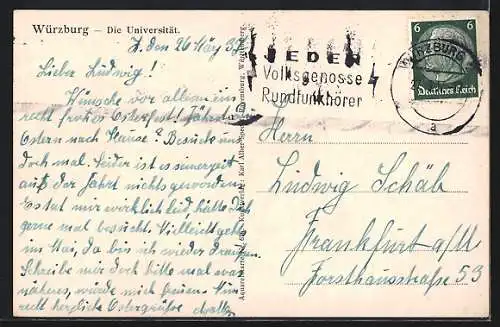 Würzburg – Die Universität.
Z. den 26 März 37.
Lieber Ludwig!
Wünsche vor allem ein
recht frohes Osterfest! Fährst du
Ostern nach Hause? Besuche uns
doch mal. Leider ist es seinerzeit
auf der Fahrt nichts geworden.
Es tat mir wirklich leid, hätte Dich
gerne mal besucht. Vielleicht geht
im Mai, da bin ich wieder draußen.
Schreibe mir doch bitte mal was
näheres, würde mich freuen. Nun
recht herzliche Ostergrüße
JEDER
Volksgenosse
Rundfunkhörer
WÜRZBURG
a
6 6
Deutsches Reich
Herrn
Ludwig Schäb
Frankfurt a/M
Forsthausstraße 53